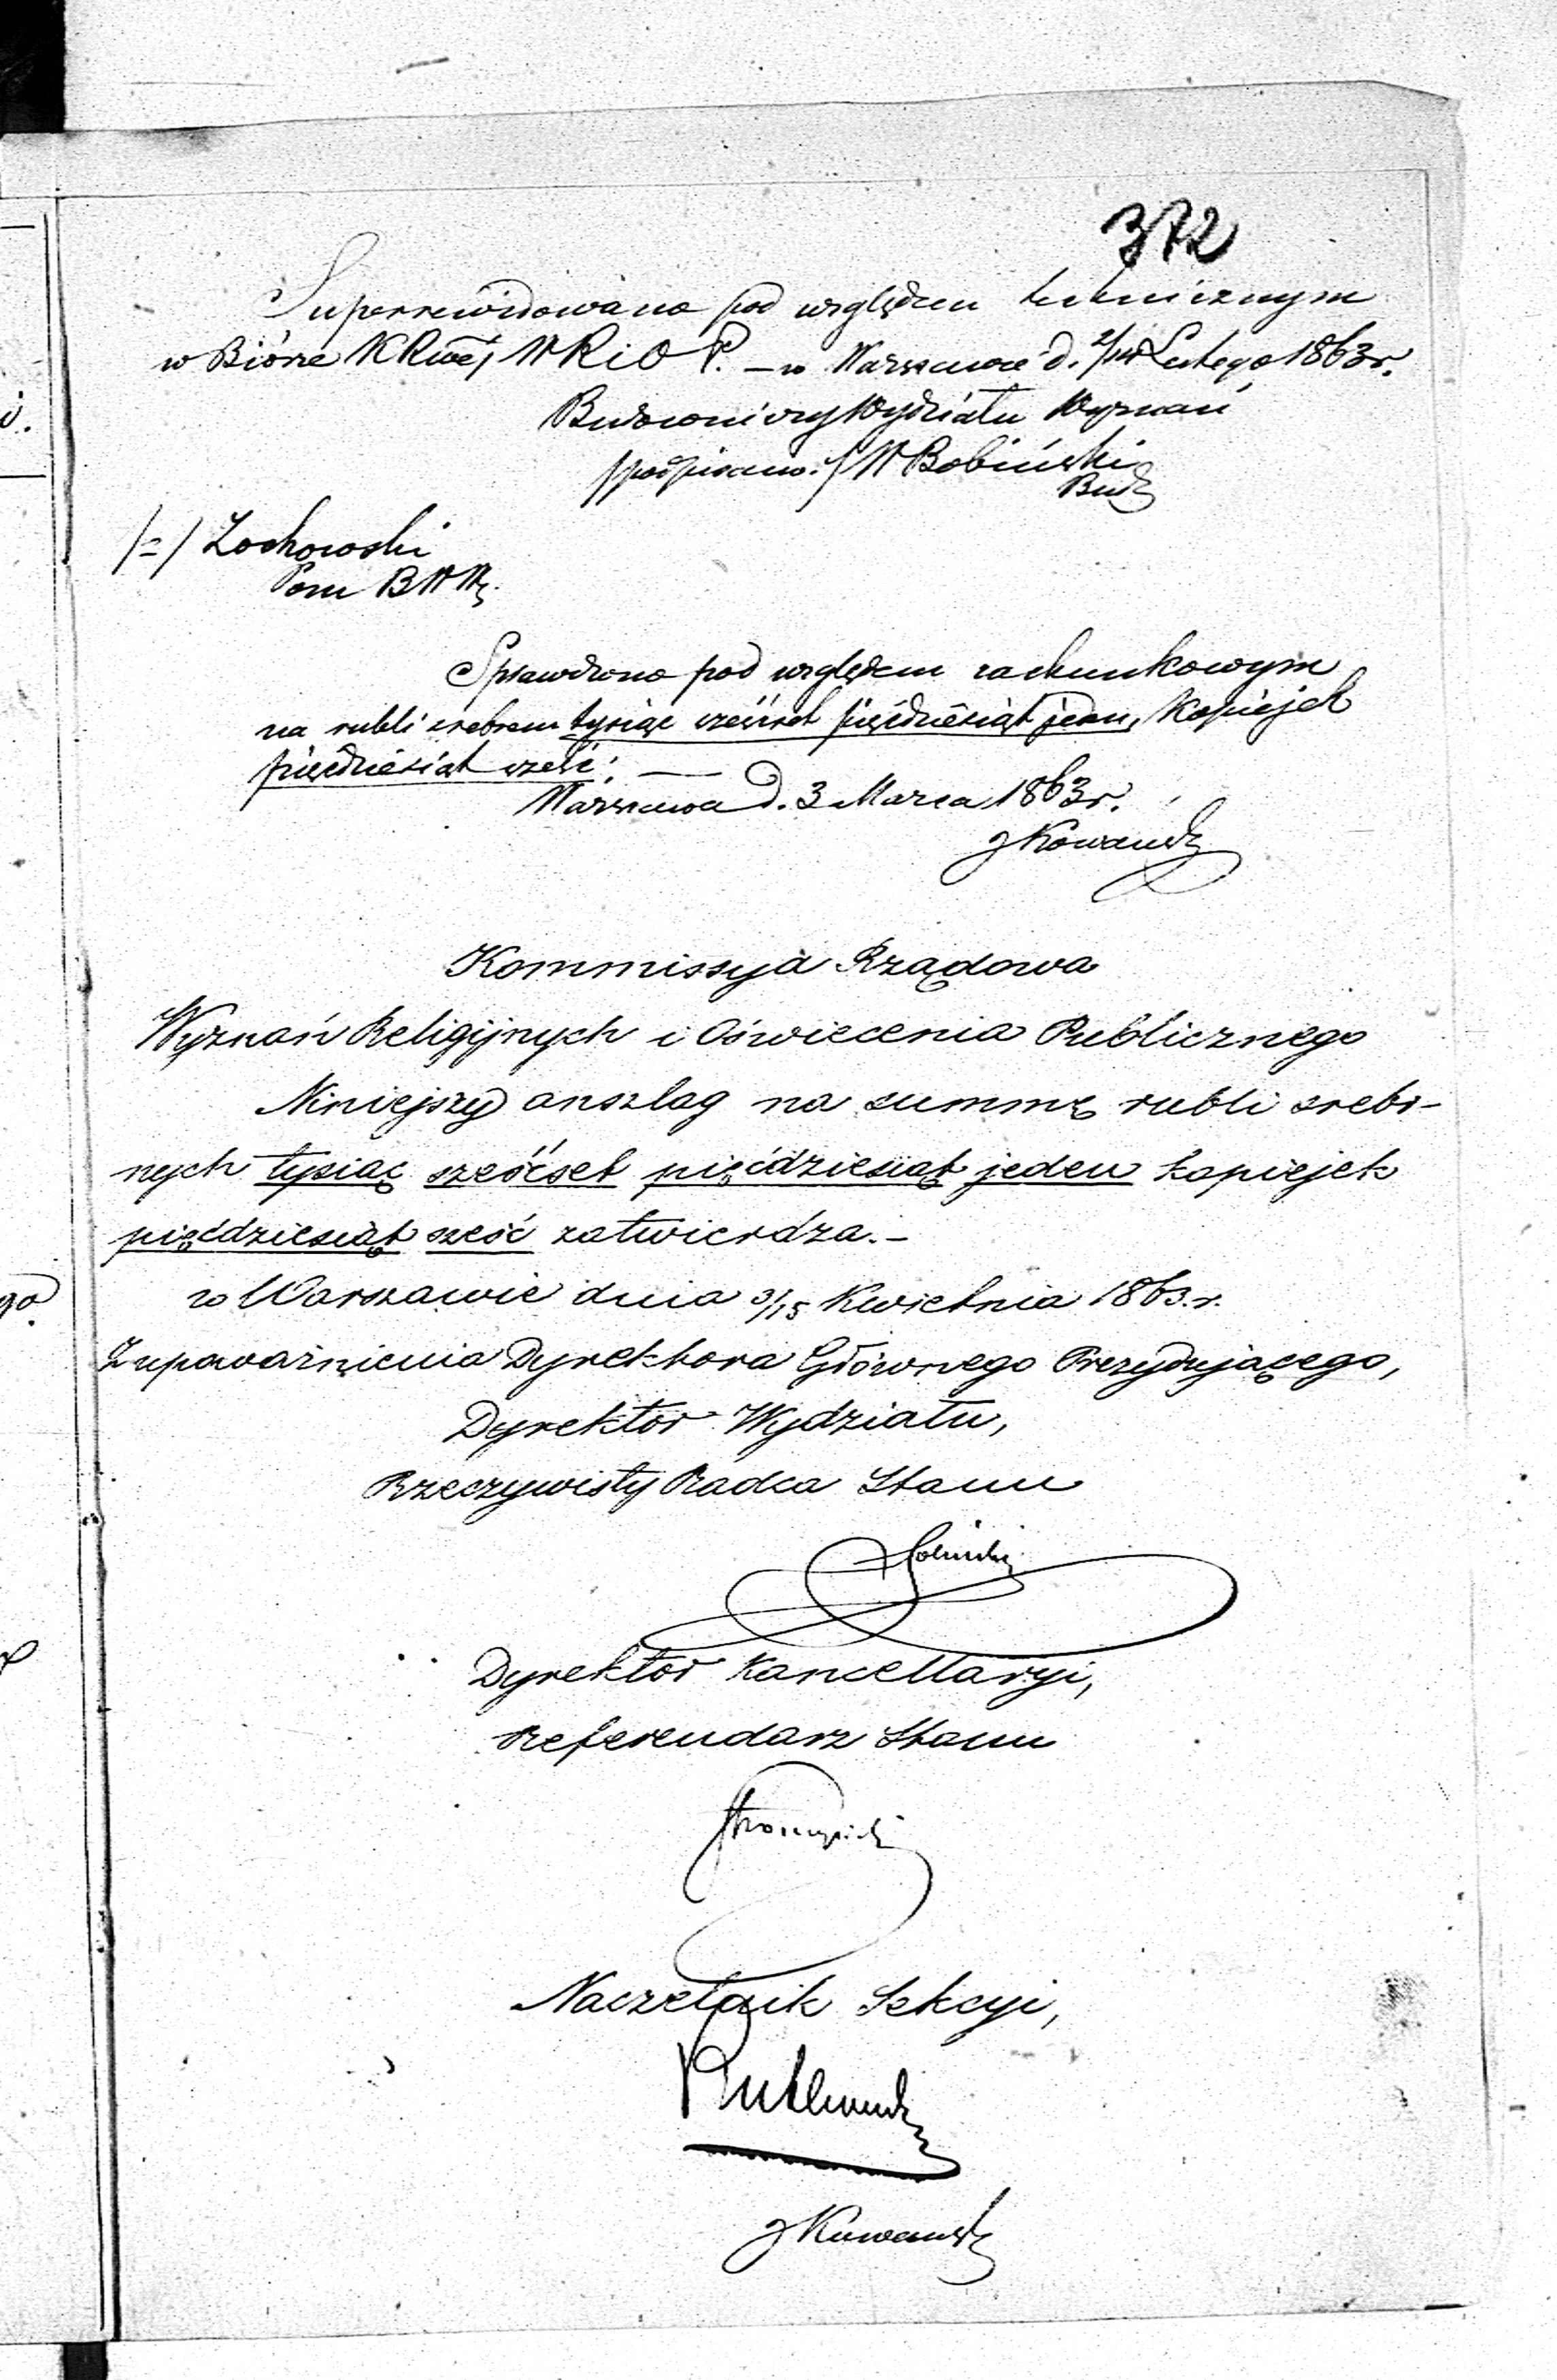 372
Superrewidowano pod względem technicznym
w Biórze K Rwéj W R i O P. – w Warszawie d. 2/14 Lutego 1863 r.
Budowniczy Wydziału Wyznań
/podpisano:/ W Bobiński
Bud
/=/ Zochowski
Pom B W W.
Sprawdzono pod względem rachunkowym
na rubli srebrem tysiąc sześćset pięćdziesiąt jeden, Kopiejek
pięćdziesiąt sześć. —
Warszawa d. 3 Marca 1863 r.
Kommissyja Rządowa
Wyznań Religijnych i Oświecenia Publicznego
Niniejszy anszlag na summę rubli srebr-
nych tysiąc sześćset pięćdziesiąt jeden kopiejek
pięćdziesiąt sześć zatwierdza. –
w Warszawie dnia 3/15 Kwietnia 1863. r.
Z upoważnienia Dyrektora Głównego Prezydującego,
Dyrektor Wydziału,
Rzeczywisty Radca Stanu
Dyrektor Kancellaryi,
Referendarz Stanu
Naczelnik Sekcyi,
go